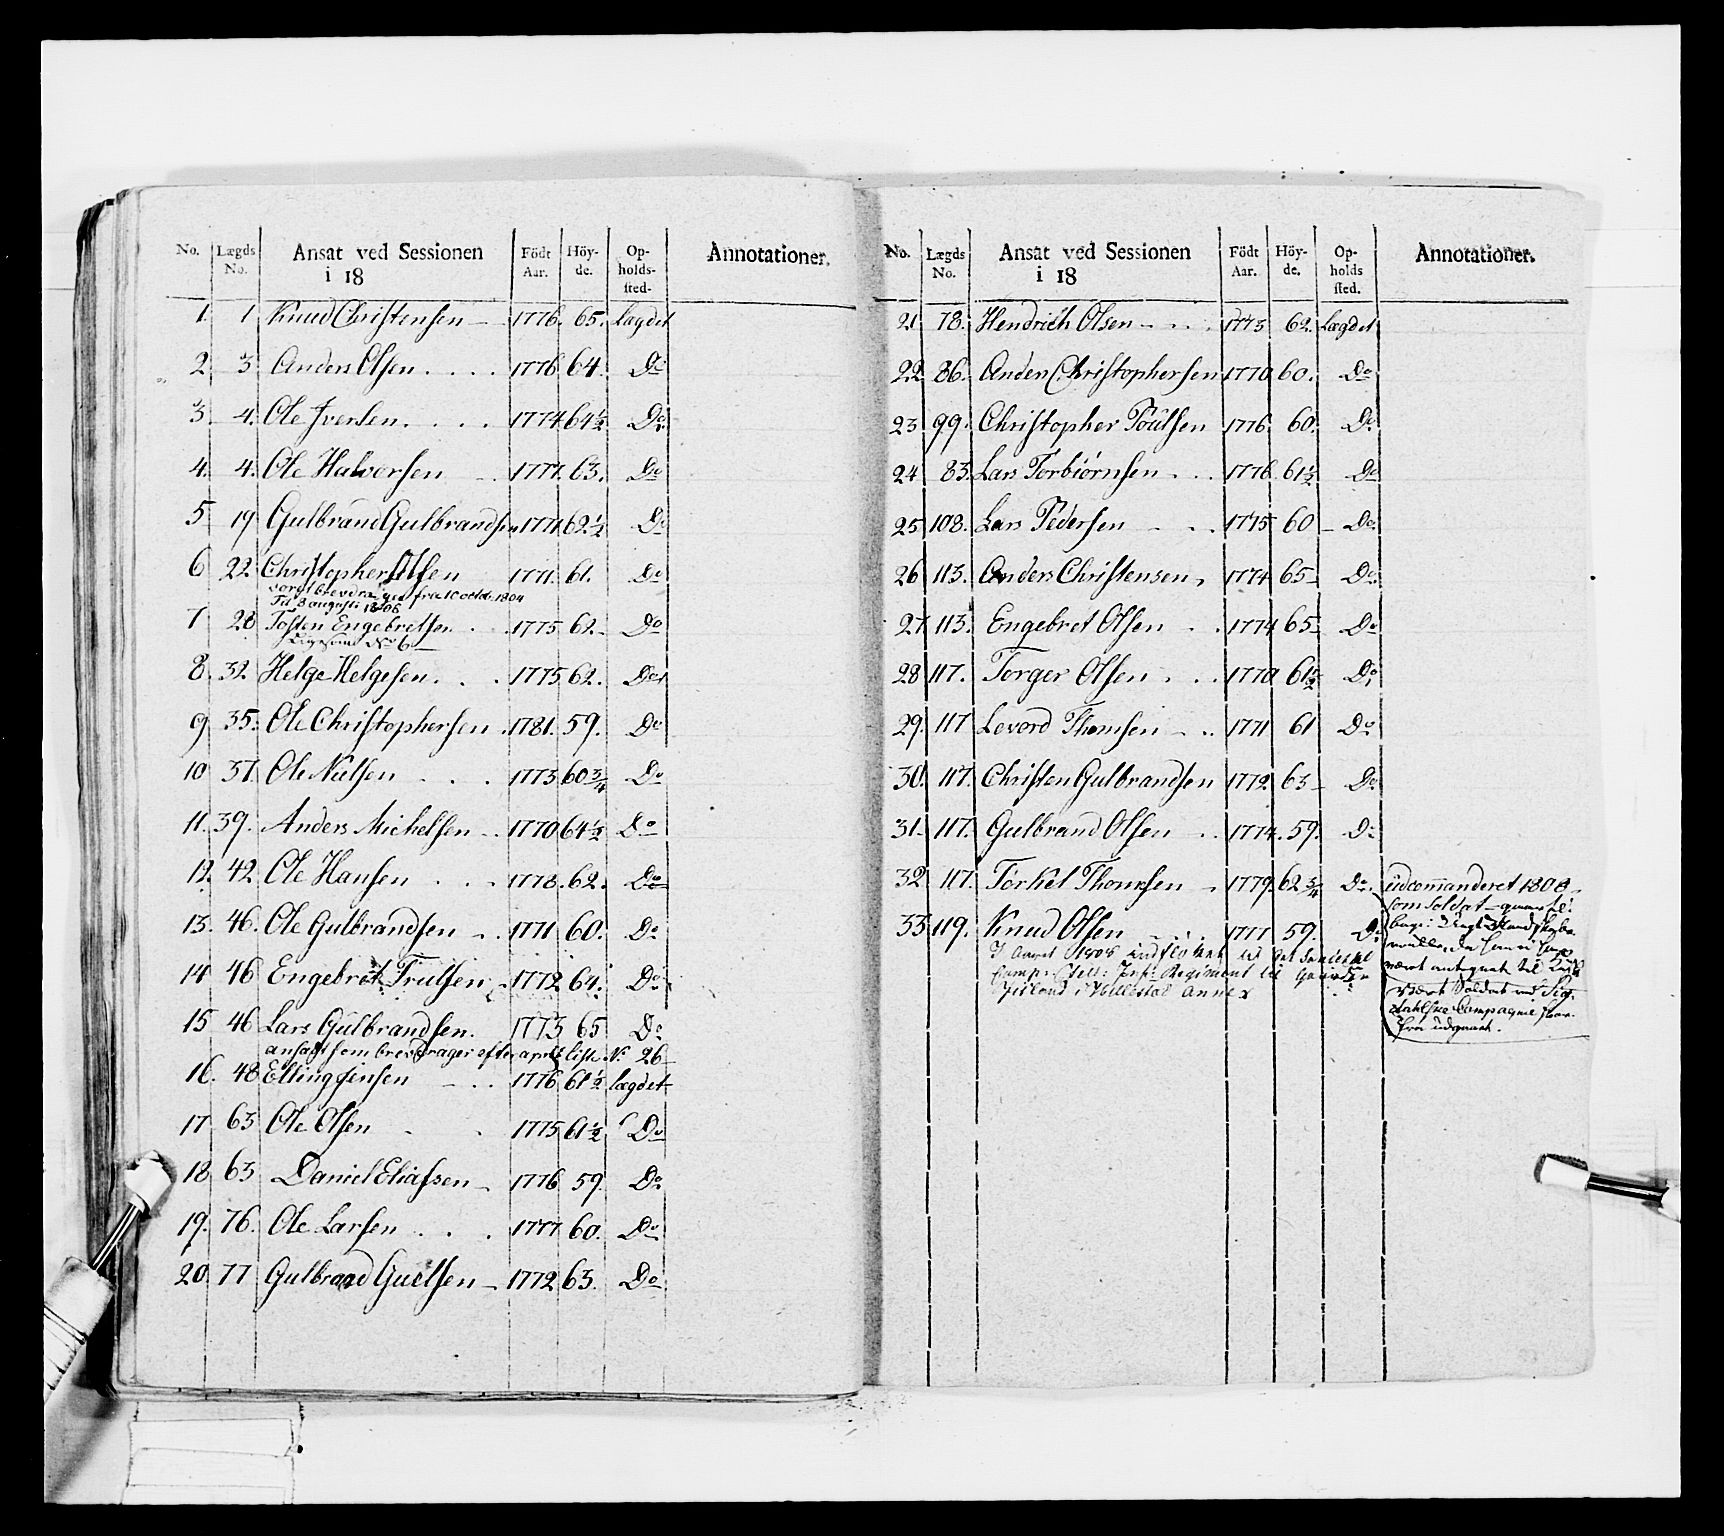 No. Lægds No. Ansat ved Sessionen i 18 Födt Aar. Höyde. Opholds-sted. Annotationer.
1. 1 Knud Christensen 1776. 65. Lægdet
2 3 Anders Olsen . . . . 1776 64. Do
3 4. Ole Iversen . . . . 1774 64½ Do
4. 4. Ole Halvorsen 1771. 63. Do
5 19 Gulbrand Gulbrandsen 1771 62½ Do
6 22 Christopher Olsen 1771. 61. Do
fra 10 octbr. 1804
Til 8 augusti 1806
7 28 Tosten Engebretsen . . 1775 62. Do
Ligesom No 6
8. 32 Helge Helgesen . . . 1775 62. Do
9 35. Ole Christophersen . 1781. 59. Do
10 37. Ole Nielsen . . . 1773 60¾ Do
11. 39. Anders Michelsen 1770 64½ Do
12. 42 Ole Hansen . . . 1778. 62. Do
13. 46. Ole Gulbrandsen . . 1771 60. Do
14 46 Engebret Trulsen 1772 64. Do
15 46 Lars Gulbrandsen. 1773 65 Do
ansat som efter liste No 26
16. 48 Elling Jensen . . 1776 61½ Lægdet
17 63 Ole Olsen 1775 61½ Do
18 63 Daniel Eliassen 1776 59. Do
19. 76. Ole Larsen . . . 1777 60. Do
20 77 Gulbrand 1772 63. Do
No. Lægds No. Ansat ved Sessionen i 18 Födt Aar. Höyde. Opholds sted. Annotationer.
21 78. Hendrich Olsen . . . 1775 62. Lægdet
22 86. Anders Christophersen 1770 60. Do
23 99. Christopher 1776. 60. Do
24 83. Lars Torbiørnsen . . . 1776. 61½ Do
25 108. Lars Pedersen . . 1775 60 Do
26 113. Anders Christensen 1774 65 Do
27 113. Engebret Olsen . . 1774 65 Do
28 117. Torger Olsen . . . 1770 61½ Do
29. 117 Levord Thomsen . . 1771 61 Do
30. 117. Christen Gulbrandsen 1772 63 Do
31. 117. Gulbrand Olsen . . 1774. 59. Do
32. 117. Torkel Thomesen . 1779. 62¾ Do. udcommanderet 1808
som Soldat
33 119. Knud Olsen . . . 1777 59. Do
I Aaret 1808 til
Comp: Regiment
Annex
været antagnet til
været Soldat ved
Compagnie